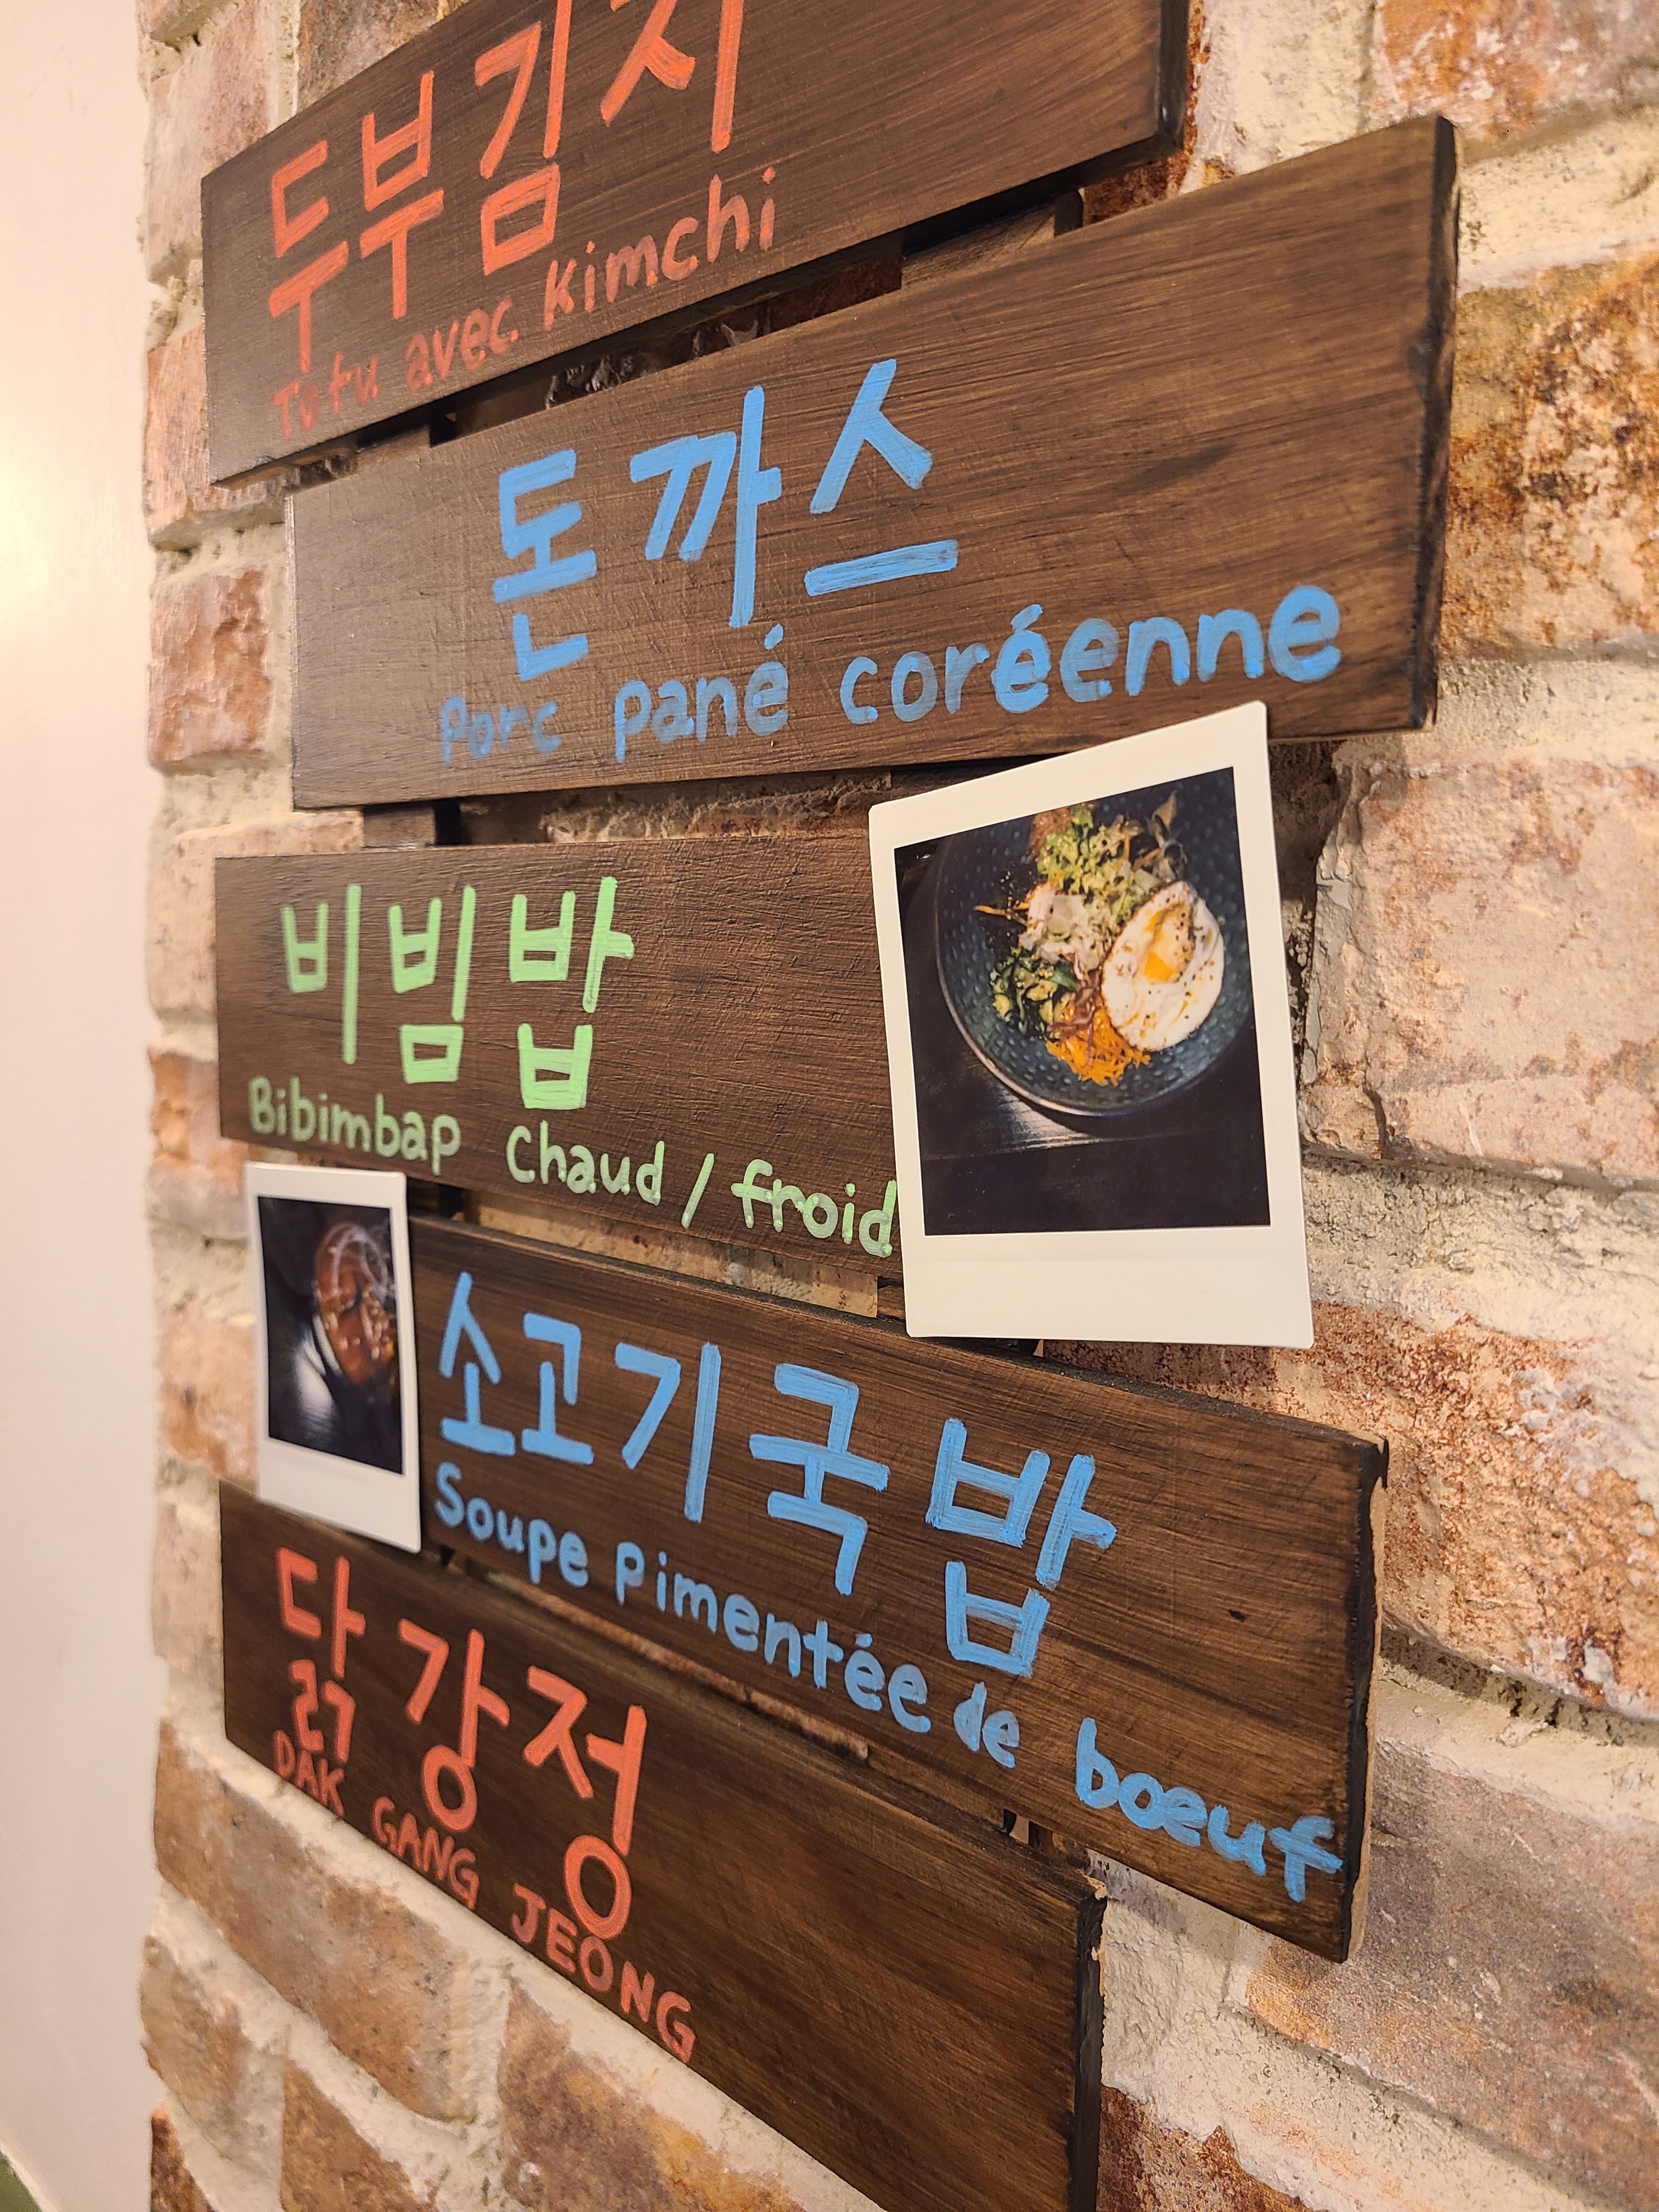 두부김치
Tofu avec Kimchi
돈까스
Porc pané coréenne
비빔밥
Bibimbap Chaud / froid
소고기국밥
Soupe Pimentée de bœuf
닭강정
DAK GANG JEONG